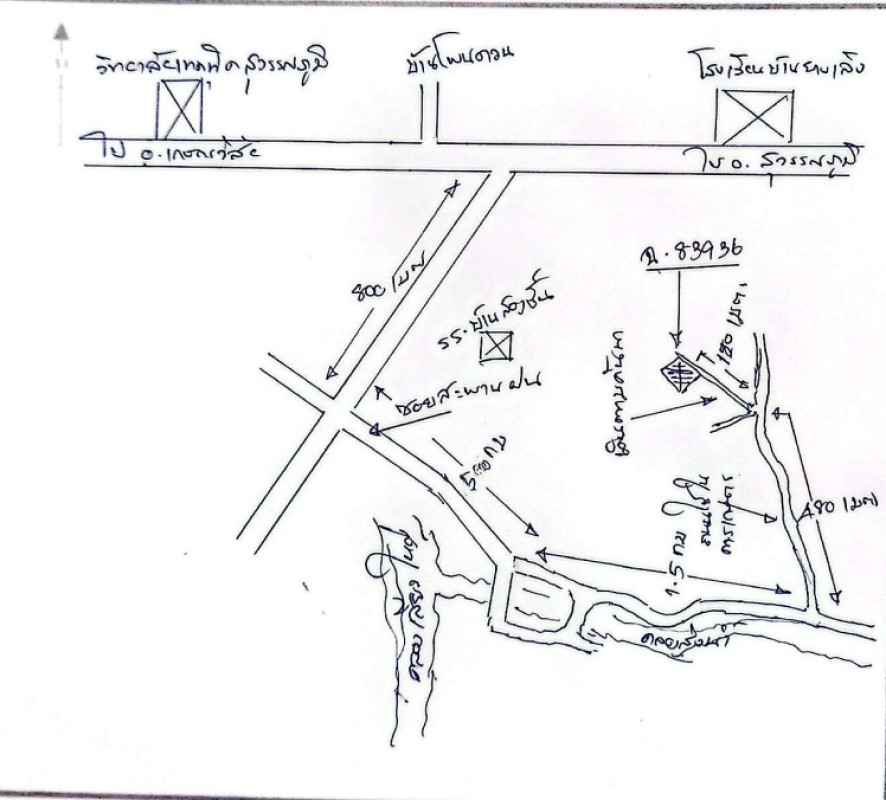 วิทยาลัยเทคนิคสุวรรณภูมิ
บ้านโพนดวน
โรงเรียนบ้านยางเลิง
ไป อ.เกษตรวิสัย
ไป อ. สุวรรณภูมิ
ฉ.83936
800 เมตร
รร.บ้านสองชั้น
180 เมตร
เดินตามคันนา
ซอยสะพานฝน
480 เมตร
1.5 กม
ถนนใช้ใน
การเกษตร
คลองส่งน้ำ